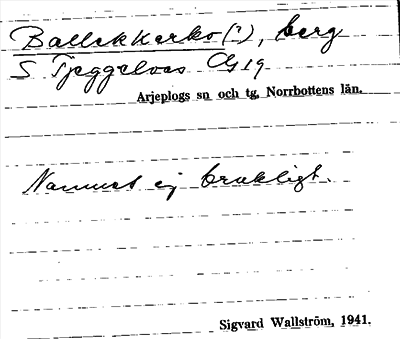 Ballekkerko (?), berg
S Tjeggelvas Cg 19
Arjeplogs sn och tg, Norrbottens län.
Namnet ej brukligt.
Sigvard Wallström, 1941.